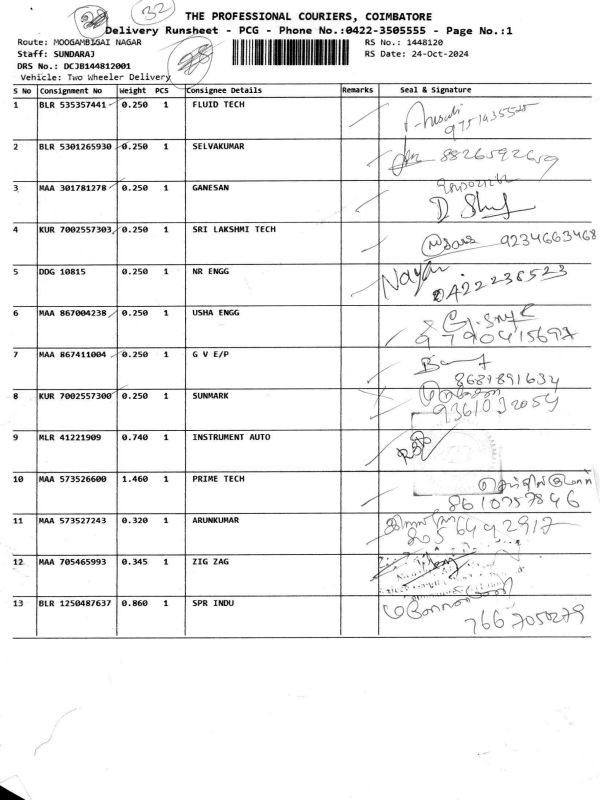 32
THE PROFESSIONAL COURIERS, COIMBATORE
Delivery Runsheet - PCG - Phone No.:0422-3505555 - Page No.:1
Route: MOOGAMBIGAI NAGAR RS No.: 1448120
Staff: SUNDARAJ RS Date: 24-Oct-2024
DRS No.: DCJB144812001
Vehicle: Two Wheeler Delivery
S No Consignment No Weight PCS Consignee Details Remarks Seal & Signature
1 BLR 535357441 0.250 1 FLUID TECH
2 BLR 5301265930 0.250 1 SELVAKUMAR 8826592659
3 MAA 301781278 0.250 1 GANESAN
4 KUR 7002557303 0.250 1 SRI LAKSHMI TECH 9234663468
5 DDG 10815 0.250 1 NR ENGG 0422238523
6 MAA 867004238 0.250 1 USHA ENGG
7 MAA 867411004 0.250 1 G V E/P 8687891634
8 KUR 7002557300 0.250 1 SUNMARK 9361032054
9 MLR 41221909 0.740 1 INSTRUMENT AUTO
10 MAA 573526600 1.460 1 PRIME TECH 8610757846
11 MAA 573527243 0.320 1 ARUNKUMAR
12 MAA 705465993 0.345 1 ZIG ZAG
13 BLR 1250487637 0.860 1 SPR INDU